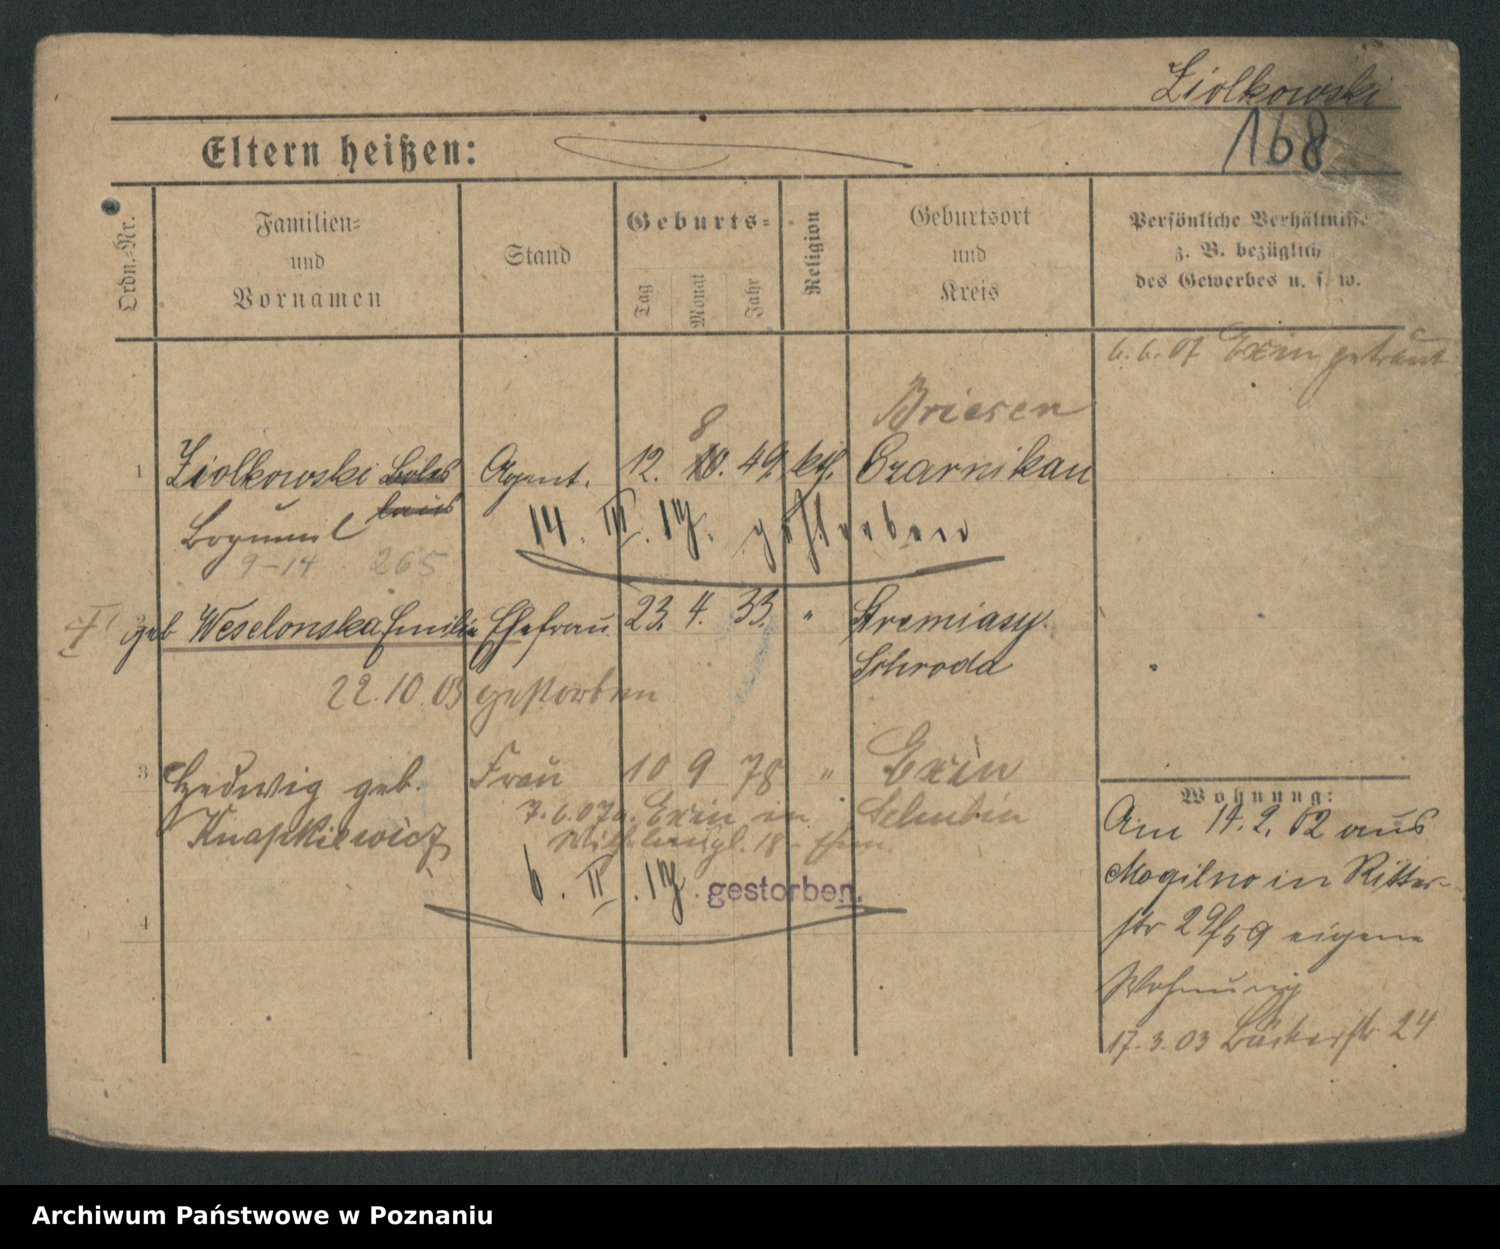 Ziolkowski
168
Eltern heißen:
Ordn.-Nr.
Familien-
und
Vornamen
Stand
Geburts-
Tag
Monat
Jahr
Religion
Geburtsort
und
Kreis
Persönliche Verhältnisse
z. B. bezüglich
des Gewerbes u. s. w.
6.6.07 Exin getraut
Briesen
8
1 Ziolkowski Boles Agent. 12. 10. 49. kth. Czarnikau
laus
Bogumil 14. III. 17. gestorben
9-14 265
geb Weselonska Emilie Ehefrau 23. 4. 33. " 
Schroda
22.10.03 gestorben
3 Hedwig geb. Frau 10 9 78 " Exin
Knapkiewicz 7.6.07 Exin in Schubin
6. II. 17. gestorben.
4
Wohnung:
Am 14.2.02 aus
Mogilno in Ritter-
str 29/59 eigene
Wohnung
17.3.03 Bäckerstr. 24
Archiwum Państwowe w Poznaniu